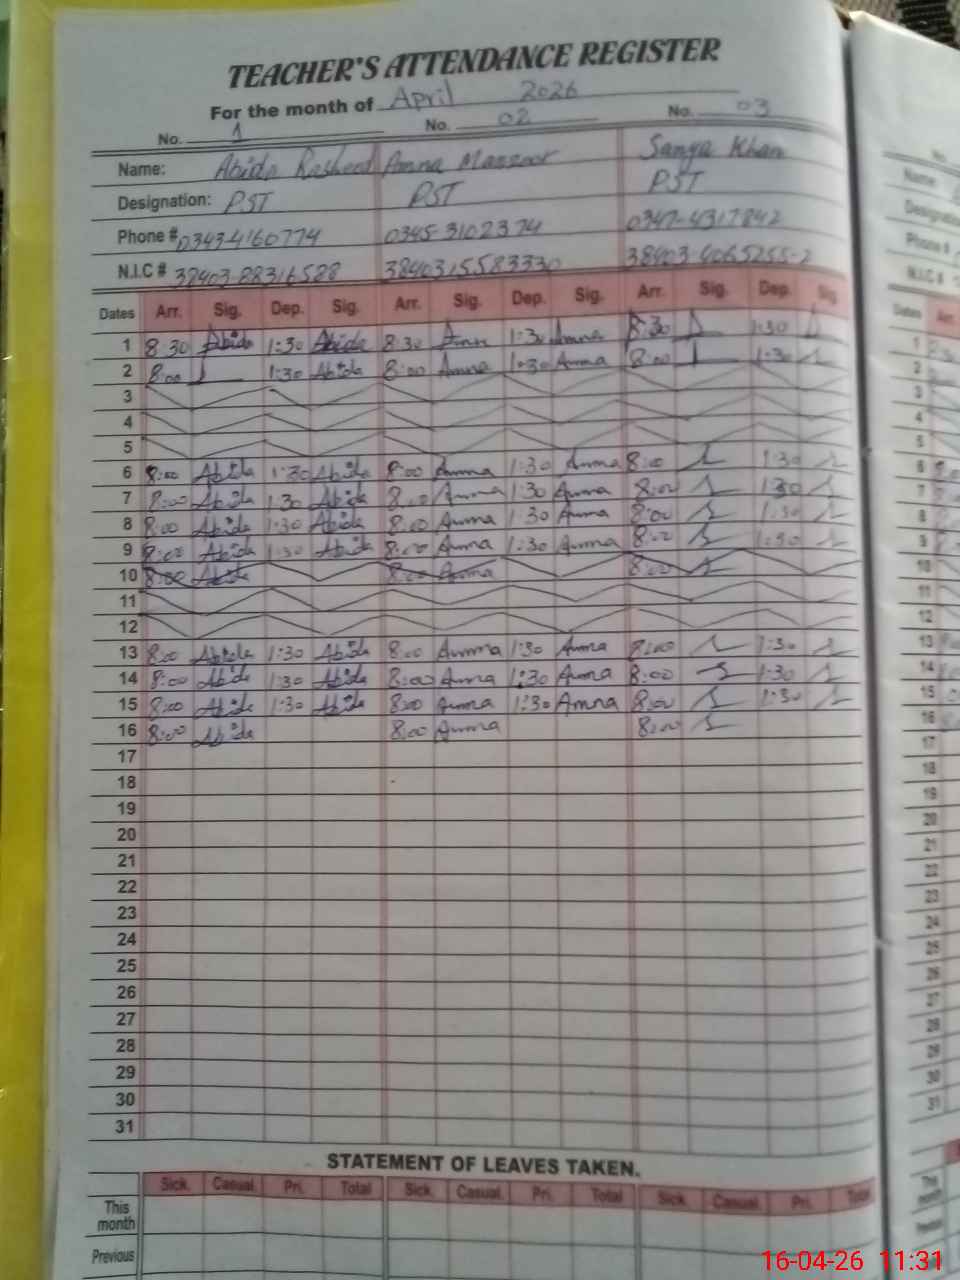 TEACHER'S ATTENDANCE REGISTER
For the month of April 2026
No. 1 No. 02 No. 03
Name: Abida Rasheed Amna Manzoor Samya Khan
Designation: PST PST PST
Phone # 0343-4160774 0345-3102374 0347-4317842
N.I.C # 38403-88316588 3840315583330 38403-4065255-2
Dates Arr. Sig. Dep. Sig. Arr. Sig. Dep. Sig. Arr. Sig. Dep. Sig.
1 8:30 Abida 1:30 Abida 8:30 Amna 1:30 Amna 8:30 1:30
2 8:00 1:30 Abida 8:00 Amna 1:30 Amna 8:00 1:30
3
4
5
6 8:00 Abida 1:30 Abida 8:00 Amna 1:30 Amna 8:00 1:30
7 8:00 Abida 1:30 Abida 8:00 Amna 1:30 Amna 8:00 1:30
8 8:00 Abida 1:30 Abida 8:00 Amna 1:30 Amna 8:00 1:30
9 8:00 Abida 1:30 Abida 8:00 Amna 1:30 Amna 8:00 1:30
10 8:00 Abida 8:00 Amna 8:00
11
12
13 8:00 Abida 1:30 Abida 8:00 Amna 1:30 Amna 8:00 1:30
14 8:00 Abida 1:30 Abida 8:00 Amna 1:30 Amna 8:00 1:30
15 8:00 Abida 1:30 Abida 8:00 Amna 1:30 Amna 8:00 1:30
16 8:00 Abida 8:00 Amna 8:00
17
18
19
20
21
22
23
24
25
26
27
28
29
30
31
STATEMENT OF LEAVES TAKEN.
Sick. Casual. Pri. Total Sick. Casual. Pri. Total Sick. Casual. Pri. Total
This month
Previous
16-04-26 11:31